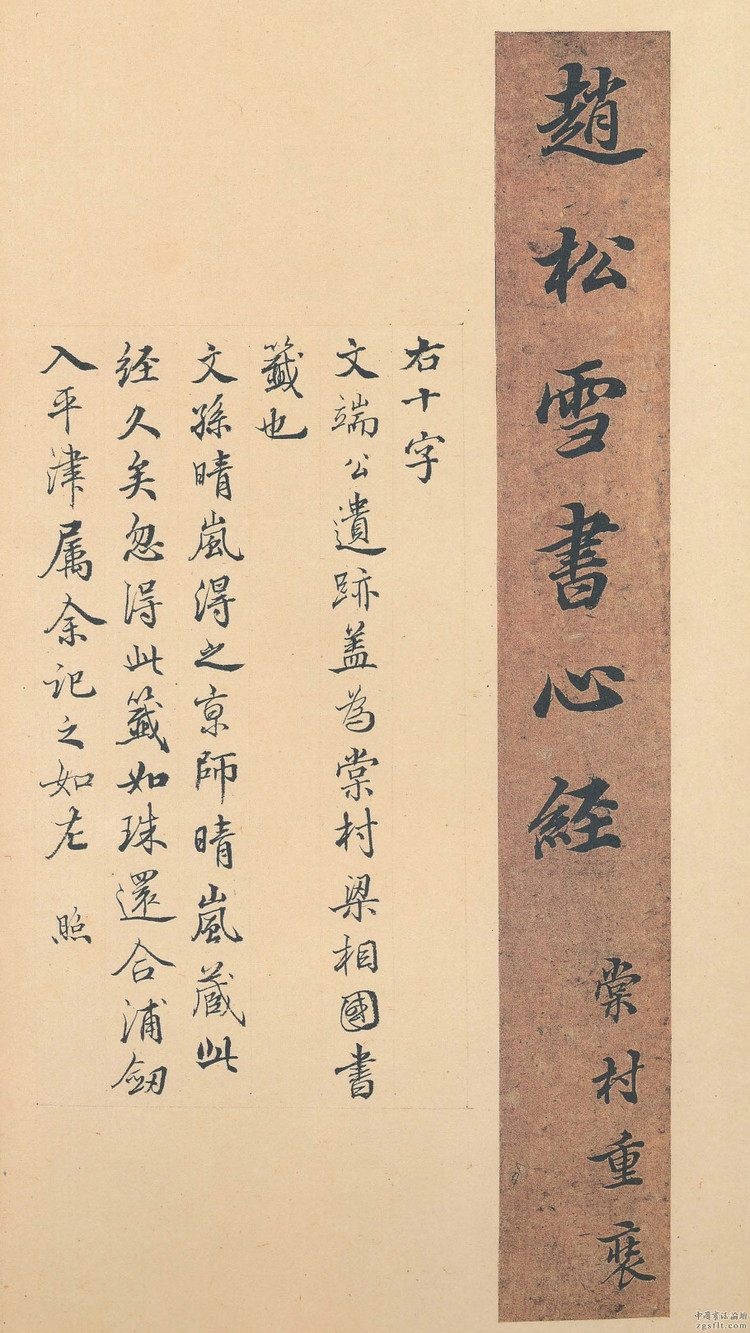 趙松雪書心経
棠村重裝
右十字
文端公遺跡蓋為棠村梁相國書
籤也
文孫晴嵐得之京師晴嵐蔵此
経久矣忽得此籤如珠還合浦劔
入平津属余記之如左 照
中国书法论坛
zgsflt.com